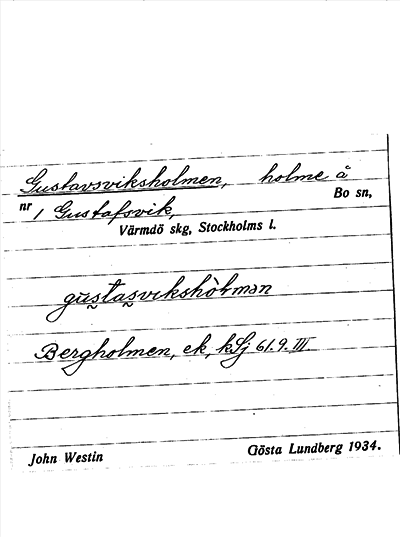 Gustavsviksholmen, holme å
nr 1 Gustafsvik, Bo sn,
Värmdö skg, Stockholms l.
gustasvikshòlmən
Bergholmen, ek, kSj 61.9.III.
John Westin Gösta Lundberg 1934.